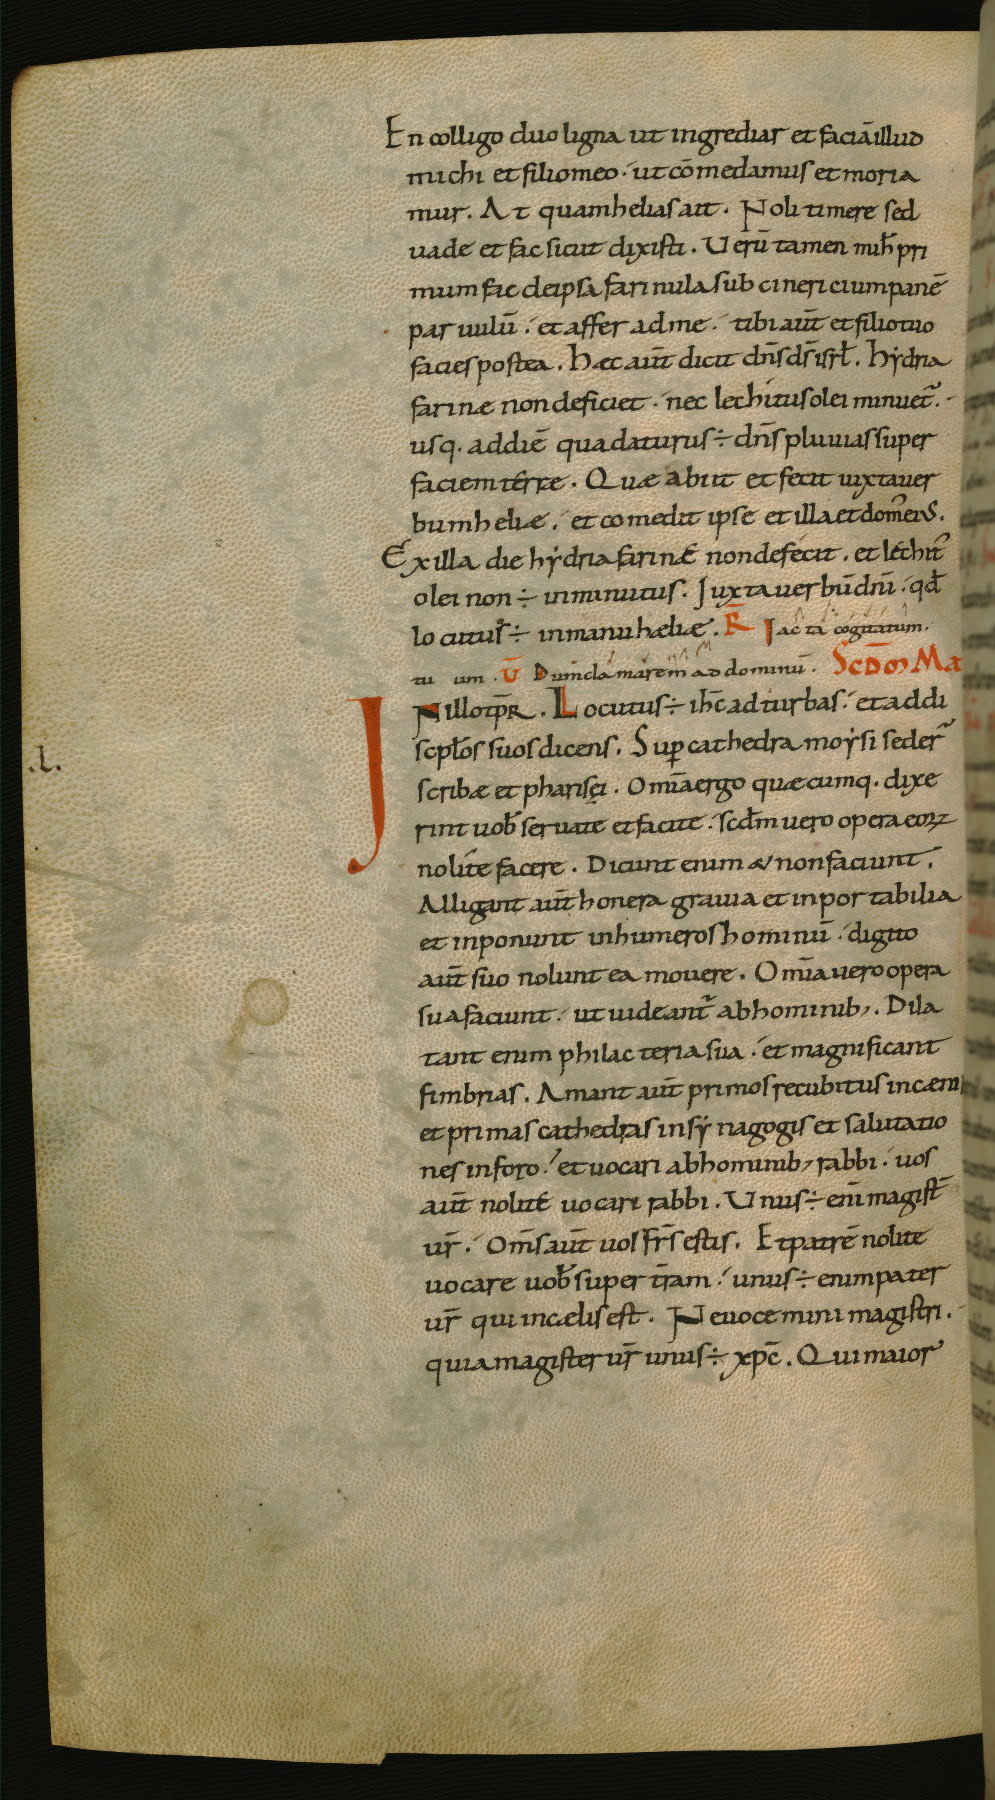 En colligo duo ligna ut ingrediar et faciā illud
michi et filio meo · ut cōmedamus et moria
mur. At quam helias ait. Noli timere sed
uade et fac sicut dixisti. Uerū tamen mih̄ pri
mum fac de ipsa farinula subcinericium panē
paruulū · et affer ad me · tibi aūt et filio tuo
facies postea. Hæc aūt dicit dn̄s ds̄ isrł. Hẏdria
farinæ non deficiet · nec lechitus olei minuet᷑ ·
usq. ad diē qua daturus ÷ dn̄s pluuias super
faciem terre. Quæ abiit et fecit iuxta uer
bum heliæ · et comedit ipse et illa et dom᷒ ei᷒.
Ex illa die hẏdria farinĘ non defecit. et lechit᷒
olei non ÷ inminutus. Juxta uerbū dnī · qđ
locutus ÷ in manu hæliæ. R̄ Jacta cogitatum
tuum. V̄ Dum clamarem ad dominū. Scdm̄ Ma
JN illo tp̄R. Locutus ÷ ih̄c ad turbas · et ad di
scipłos suos dicens. Sup cathedra moẏsi seder᷑
scribæ et pharisęi. Om̄ia ergo quæcumq. dixe
rint uob̄ seruate et facite · scđm uero opera eoꝝ
nolite facere. Dicunt enim & non faciunt.
Alligant aūt honera grauia et inportabilia
.l.
et inponunt in humeros hominū · digito
aūt suo nolunt ea mouere. Om̄ia uero opera
sua faciunt · ut uideant᷑ ab hominib;. Dila
tant enim philacteria sua · et magnificant
fimbrias. Amant aūt primos recubitus in cæni
et primas cathedras in sẏnagogis et salutatio
nes in foro · et uocari ab hominib; rabbi · uos
aūt nolite uocari rabbi. Unus ÷ enī magist̄
ur̄ · Om̄s aūt uos fr̄s estis. Et patrē nolite
uocare uob̄ super tr̄am · unus ÷ enim pater
ur̄ qui in cælis est. Ne uocemini magistri.
quia magister ur̄ unus ÷ xp̄c. Qui maior